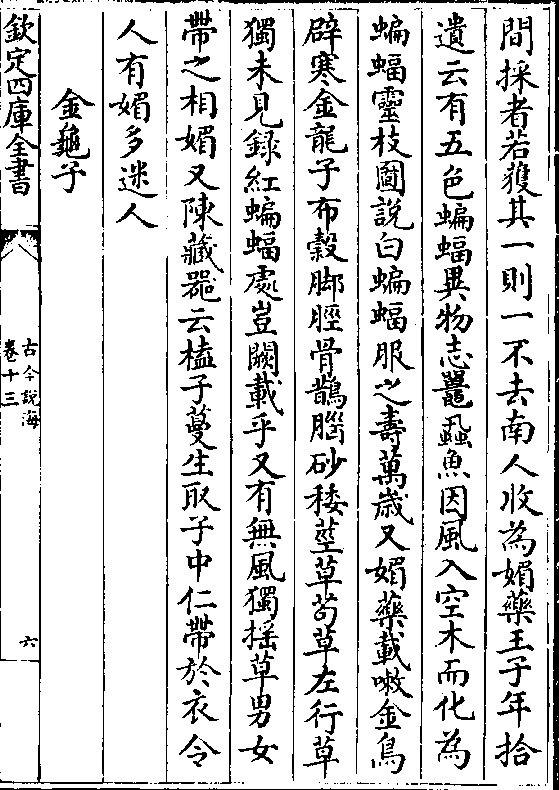 間採者若獲其一則一不去南人收為媚藥王子年拾
遺云有五色蝙蝠異物志鼉虱魚因風入空木而化為
蝙蝠靈枝圖說白蝙蝠服之壽萬歲又媚藥載嗽金鳥
辟寒金龍子布穀脚脛骨鵲腦砂矮莖草茍草左行草
獨未見録紅蝙蝠處豈闕載乎又有無風獨揺草男女
帶之相媚又陳藏器云榼子蔓生取子中仁帶於衣令
人有媚多迷人
金龜子
欽定四庫全書
古今說海
卷十三
六